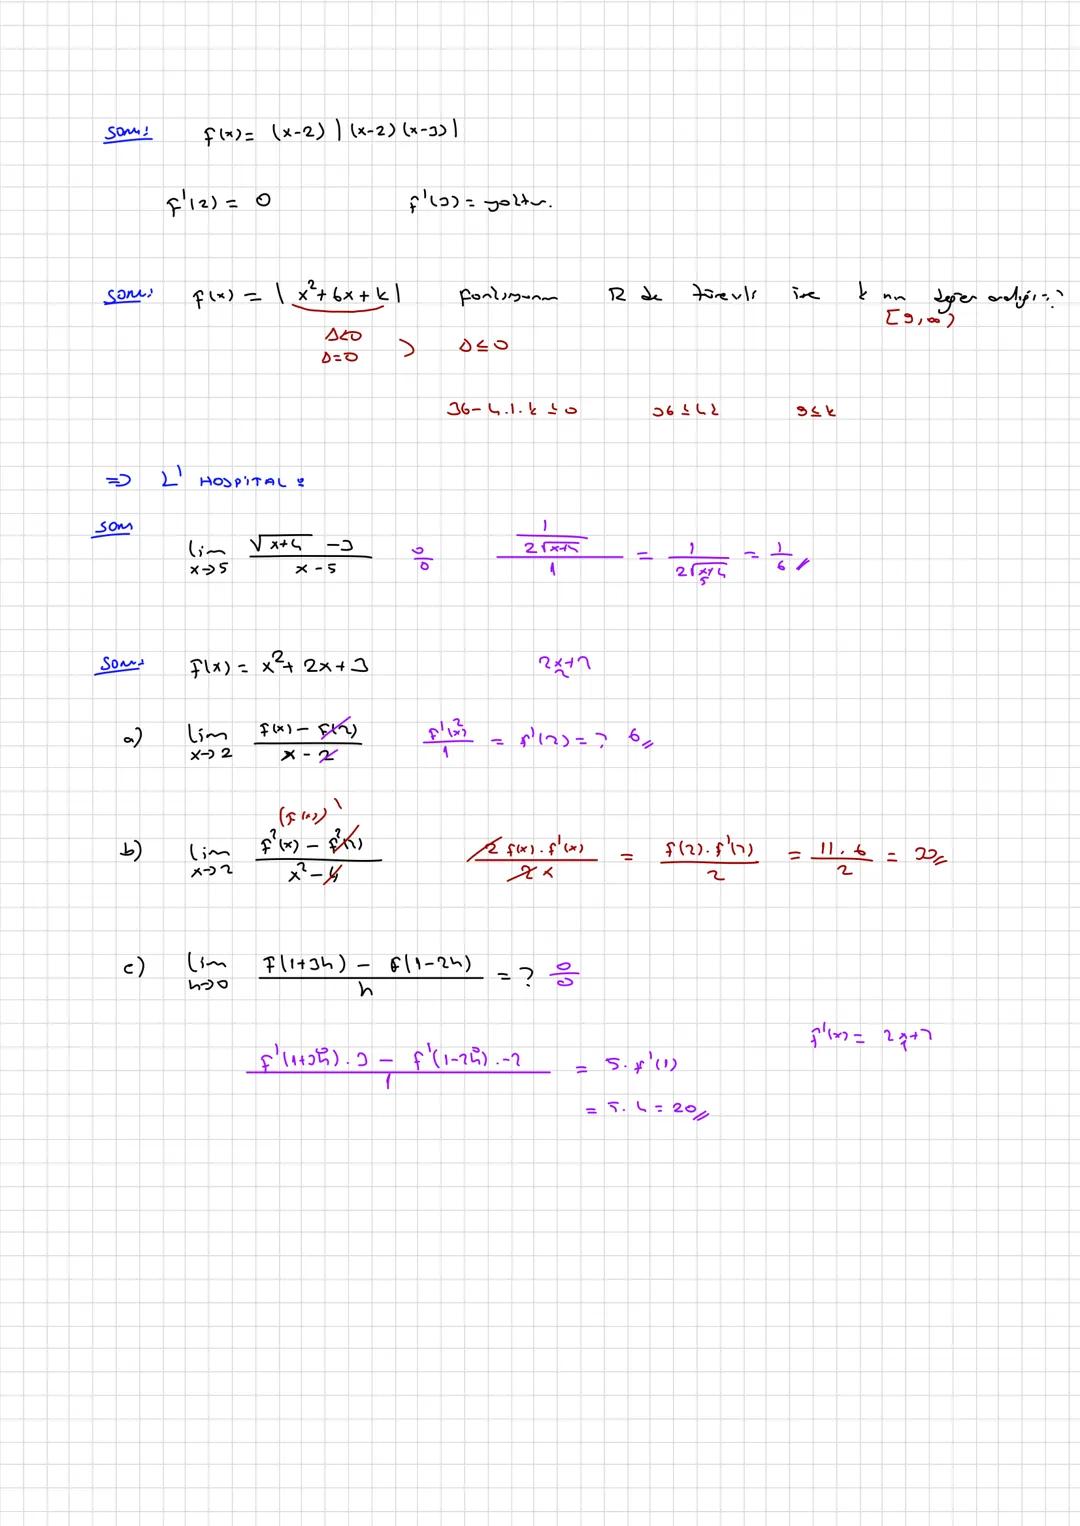 Soru: f(x) = (x-2) |(x-2)(x-3)|
f'(2) = 0 f'(3) = yoktur.
Soru: f(x) = |x²+6x+k| fonksiyonu R de türevli ise k nın değer aralığı=?
[9,∞)
Δ<0
Δ=0 Δ≤0
36-4.1.k ≤0 36≤4k 9≤k
⇒ L' HOSPİTAL:
Soru lim x→5 (√(x+4) - 3)/(x-5) 0/0 (1/(2√(x+4)))/1 = 1/(2√(x+4)) = 1/6
5
Soru: f(x) = x²+2x+3 2x+2
2
a) lim x→2 (f(x) - f(2))/(x-2) f'(x)/1 = f'(2) = ? 6
2
(f(x))²
b) lim x→2 (f²(x) - f²(2))/(x²-4) 2f(x).f'(x)/2x = f(2).f'(2)/2 = 11.6/2 = 33
c) lim h→0 (f(1+3h) - f(1-2h))/h = ? 0/0
f'(x) = 2x+2
1
(f'(1+3h).3 - f'(1-2h).-2)/1 = 5.f'(1)
0 0
= 5.4 = 20